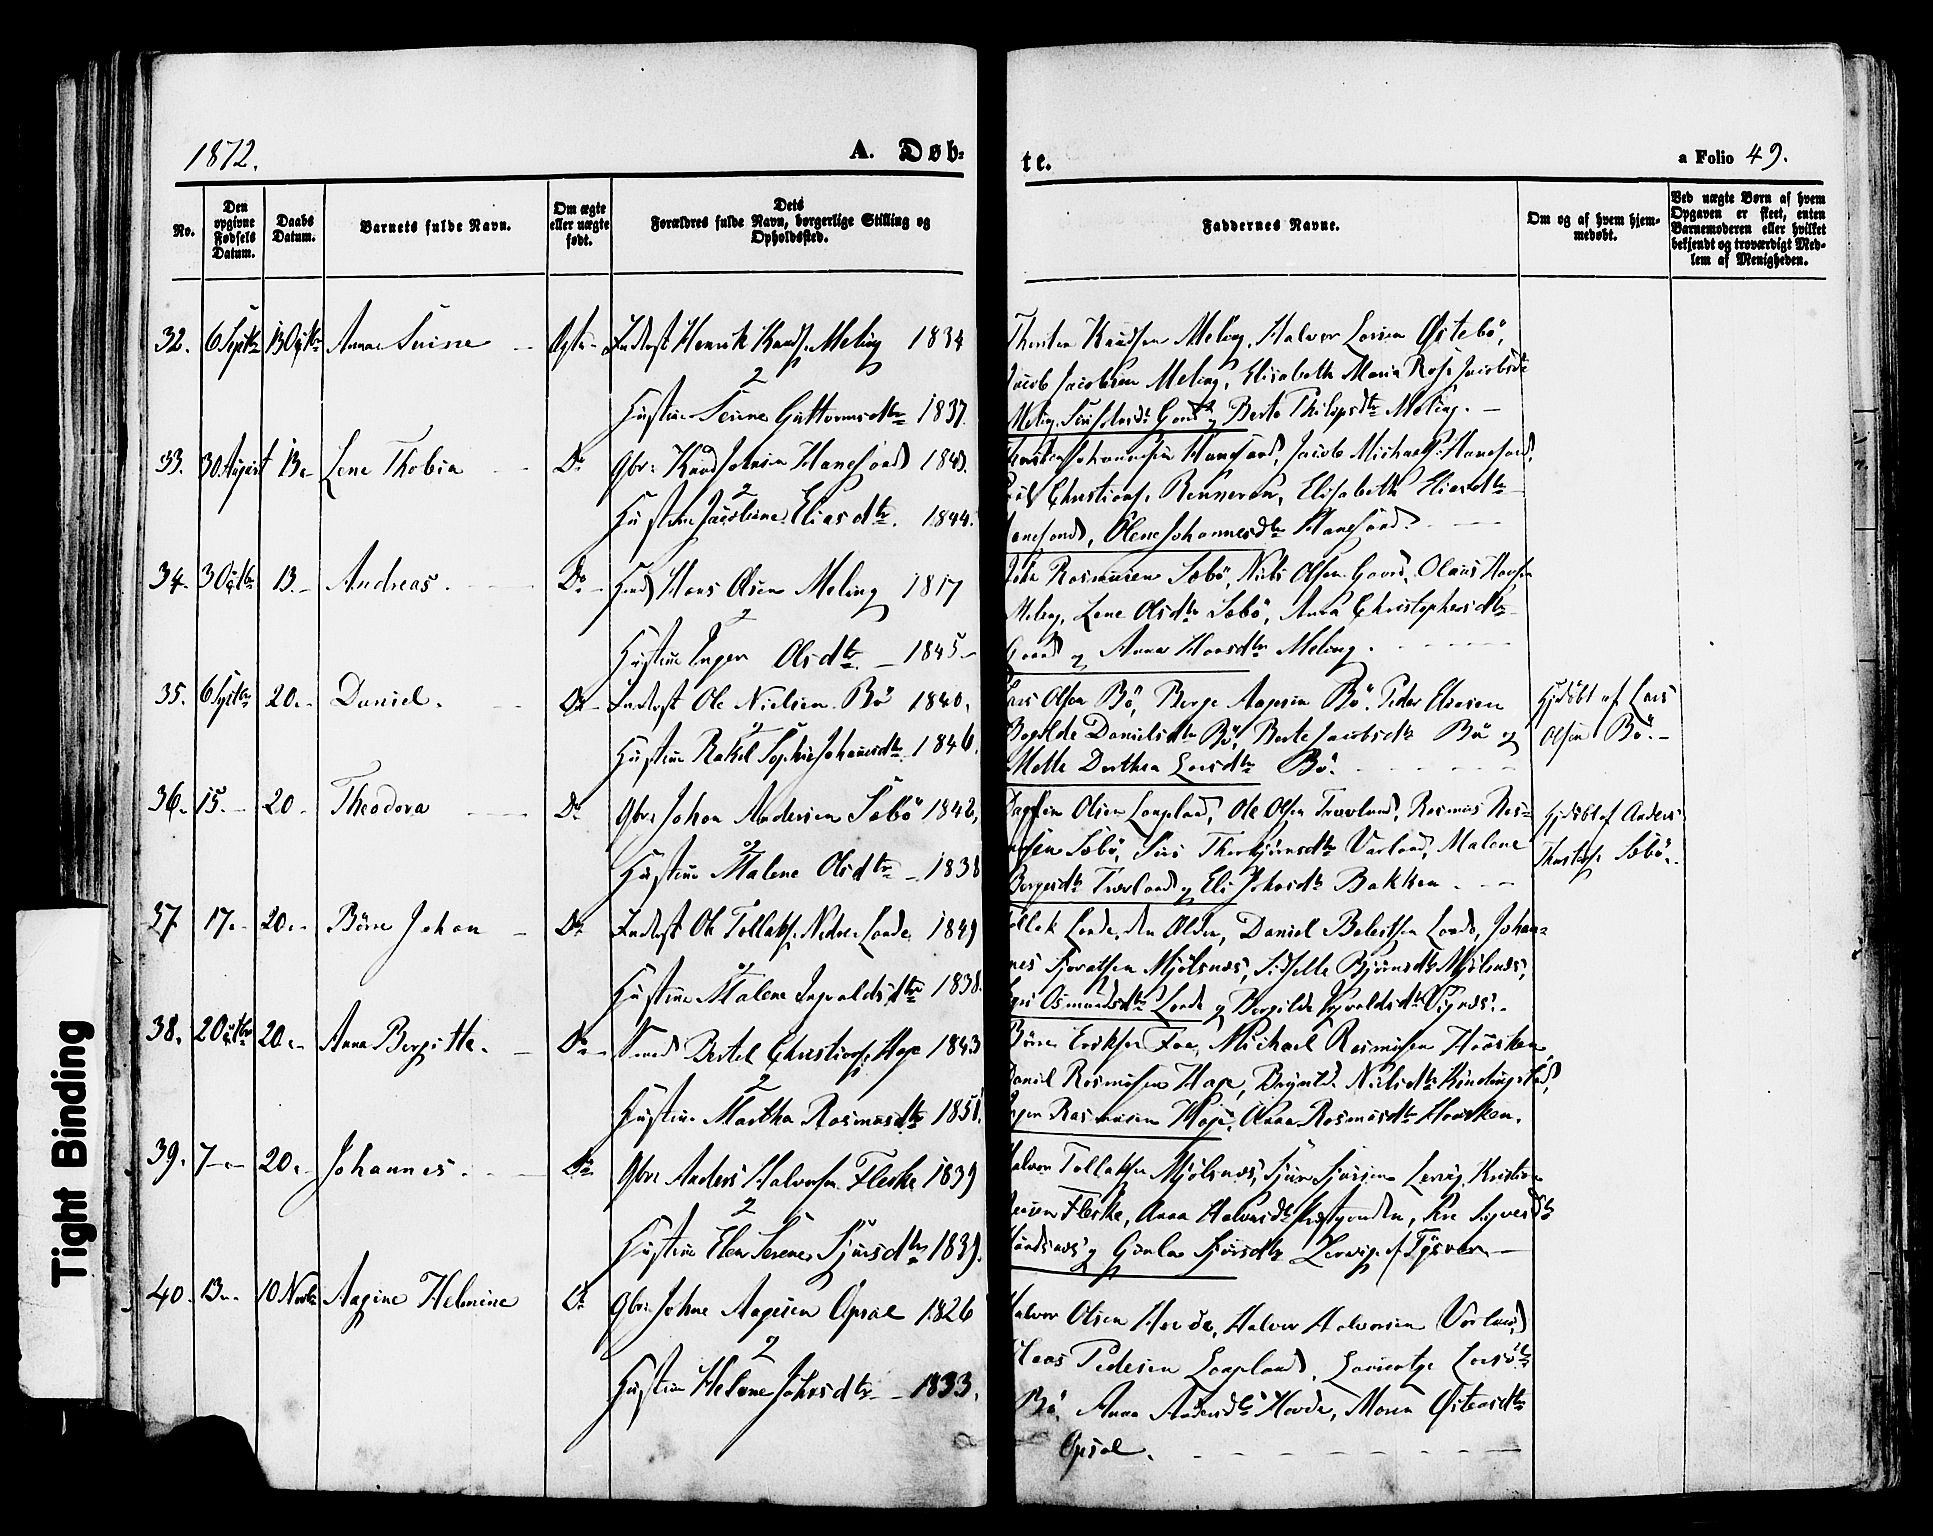 1872.
A. Døb-
te.
a Folio 49.
No.
Den opgivne Fødsels Datum.
Daabs Datum.
Barnets fulde Navn.
Om ægte eller uægte født.
Dets Forældres fulde Navn, borgerlige Stilling og Opholdssted.
Faddernes Navne.
Om og af hvem hjemmedøbt.
Ved uægte Børn af hvem Opgaven er skeet, enten Barnemoderen eller hvilket bekjendt og troværdigt Medlem af Menigheden.
32. 6 Septbr 13 Octbr Anna Serine Ægte Inderst Henrik Knuds. Meling 1834
Hustrue Serine Guttormsdtr 1837.
Knudsen Meling, Halvor Larsen Østebö,
Jacob Jacobsen Meling, Elisabeth Maria Jacobsdr
Meling, Gaard og Berte Thilipsdtr Meling.
33. 30 August 13 Lene Thobia Do Gbr: Knud Johnsen Hanesand 1843.
Hustrue Jacobine Eliasdtr. 1844.
Johannesen Hanesand, Jacob Michaels. Hanesand,
Christians. Renneren, Elisabeth Eliasdtr
Hanesand, Olene Johannesdtr Hanesand.
34. 3 Octbr 13. Andreas. Do Hans Olsen Meling 1817
Hustrue Inger Olsdtr. 1845
John Rasmusen Sæbö, Niels Olsen Gaard, Olaus Hansen
Meling, Lene Olsdtr Sæbö, Anna Christophersdtr
Gaard og Anna Hansdtr Meling.
35. 6 Septbr 20. Daniel. Do Inderst Ole Nielsen Bö 1840.
Hustrue Rakel Sophie Johannesdtr 1846.
Lars Olsen Bö, Berge Aagesen Bö, Peder Eliasen
Danielsdtr Bö, Berte Jacobsdtr Bö og
Mette Dorthea Larsdtr Bö.
Hjdöbt af Lars
Olsen Bö.
36. 15. 20. Theodora Do Gbr: Johan Andersen Sæbö 1842,
Hustrue Malene Olsdtr 1838
Dagfin Olsen Laupland, Ole Olsen Travland, Rasmus Ras-
musen Sæbö, Siri Thorbjörnsdtr Varland, Malene
Bergesdtr Travland og Eli Johnsdtr Bakken
Hjdöbt af Anders
Sæbö.
37. 17. 20. Börre Johan Do Inderst Ole Tollaks. Nedre Lande 1849
Hustrue Malene Ingvaldsdtr 1838.
Tollak Lande, den Olden, Daniel Lande, Johan-
nes Mjölsnæs, Sidselle Björnsdtr Mjölsnæs,
Osmundsdtr Lande og Ingvaldsdtr Vignæs.
38. 2 Octbr 20. Anna Bergitta. Do Bertel Christians. Hage 1843
Hustrue Martha Rasmusdtr 1851.
Börre Eriksen Foe, Michael Rasmusen Haasken,
Daniel Rasmusen Hage, Nielsdtr Kindingstad,
Rasmusen Hage, Anna Rasmusdtr Haasken.
39. 7 20. Johannes. Do Gbr: Anders Halvorsen Fleske 1839
Hustrue Elen Serene Sjursdtr 1839.
Halvor Tollaksen Mjölsnæs, Sjur Sjursen Lervig,
Fleske, Anna Halvorsdtr
og Gunla Sjursdtr Lervig af Tysvær
40. 13. 10 Novbr Aagine Helmine Do Gbr: Johne Aagesen Opsal 1826
Hustrue Helene Johnsdtr 1833.
Halvor Olsen Hovde, Halvor Halvorsen Varland,
Claas Pedersen Laupland, Larsdtr
Bö, Anna Andersdtr Hovde, Maren Østensdtr
Opsal.
Tight Binding